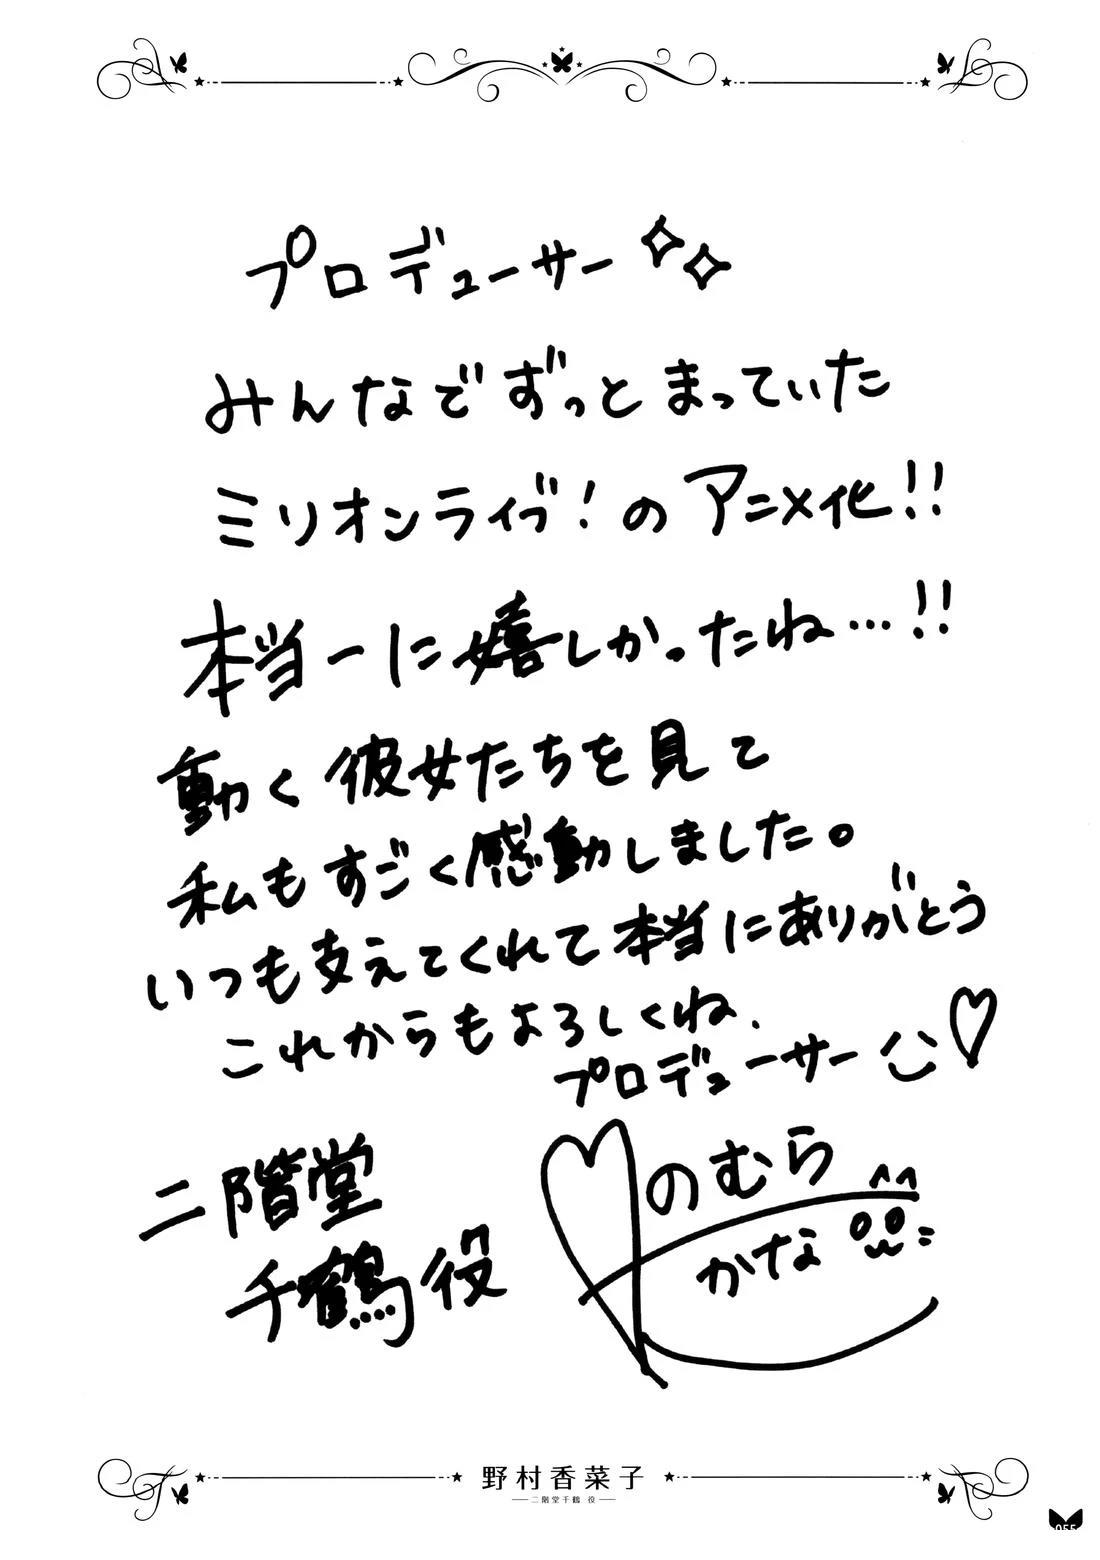 プロデューサー
みんなでずっとまっていた
ミリオンライブ!のアニメ化!!
本当ーに嬉しかったね…!!
動く彼女たちを見て
私もすごく感動しました。
いつも支えてくれて本当にありがとう
これからもよろしくね、
プロデューサー
二階堂
千鶴役
のむら
かな
野村香菜子
二階堂千鶴 役
055